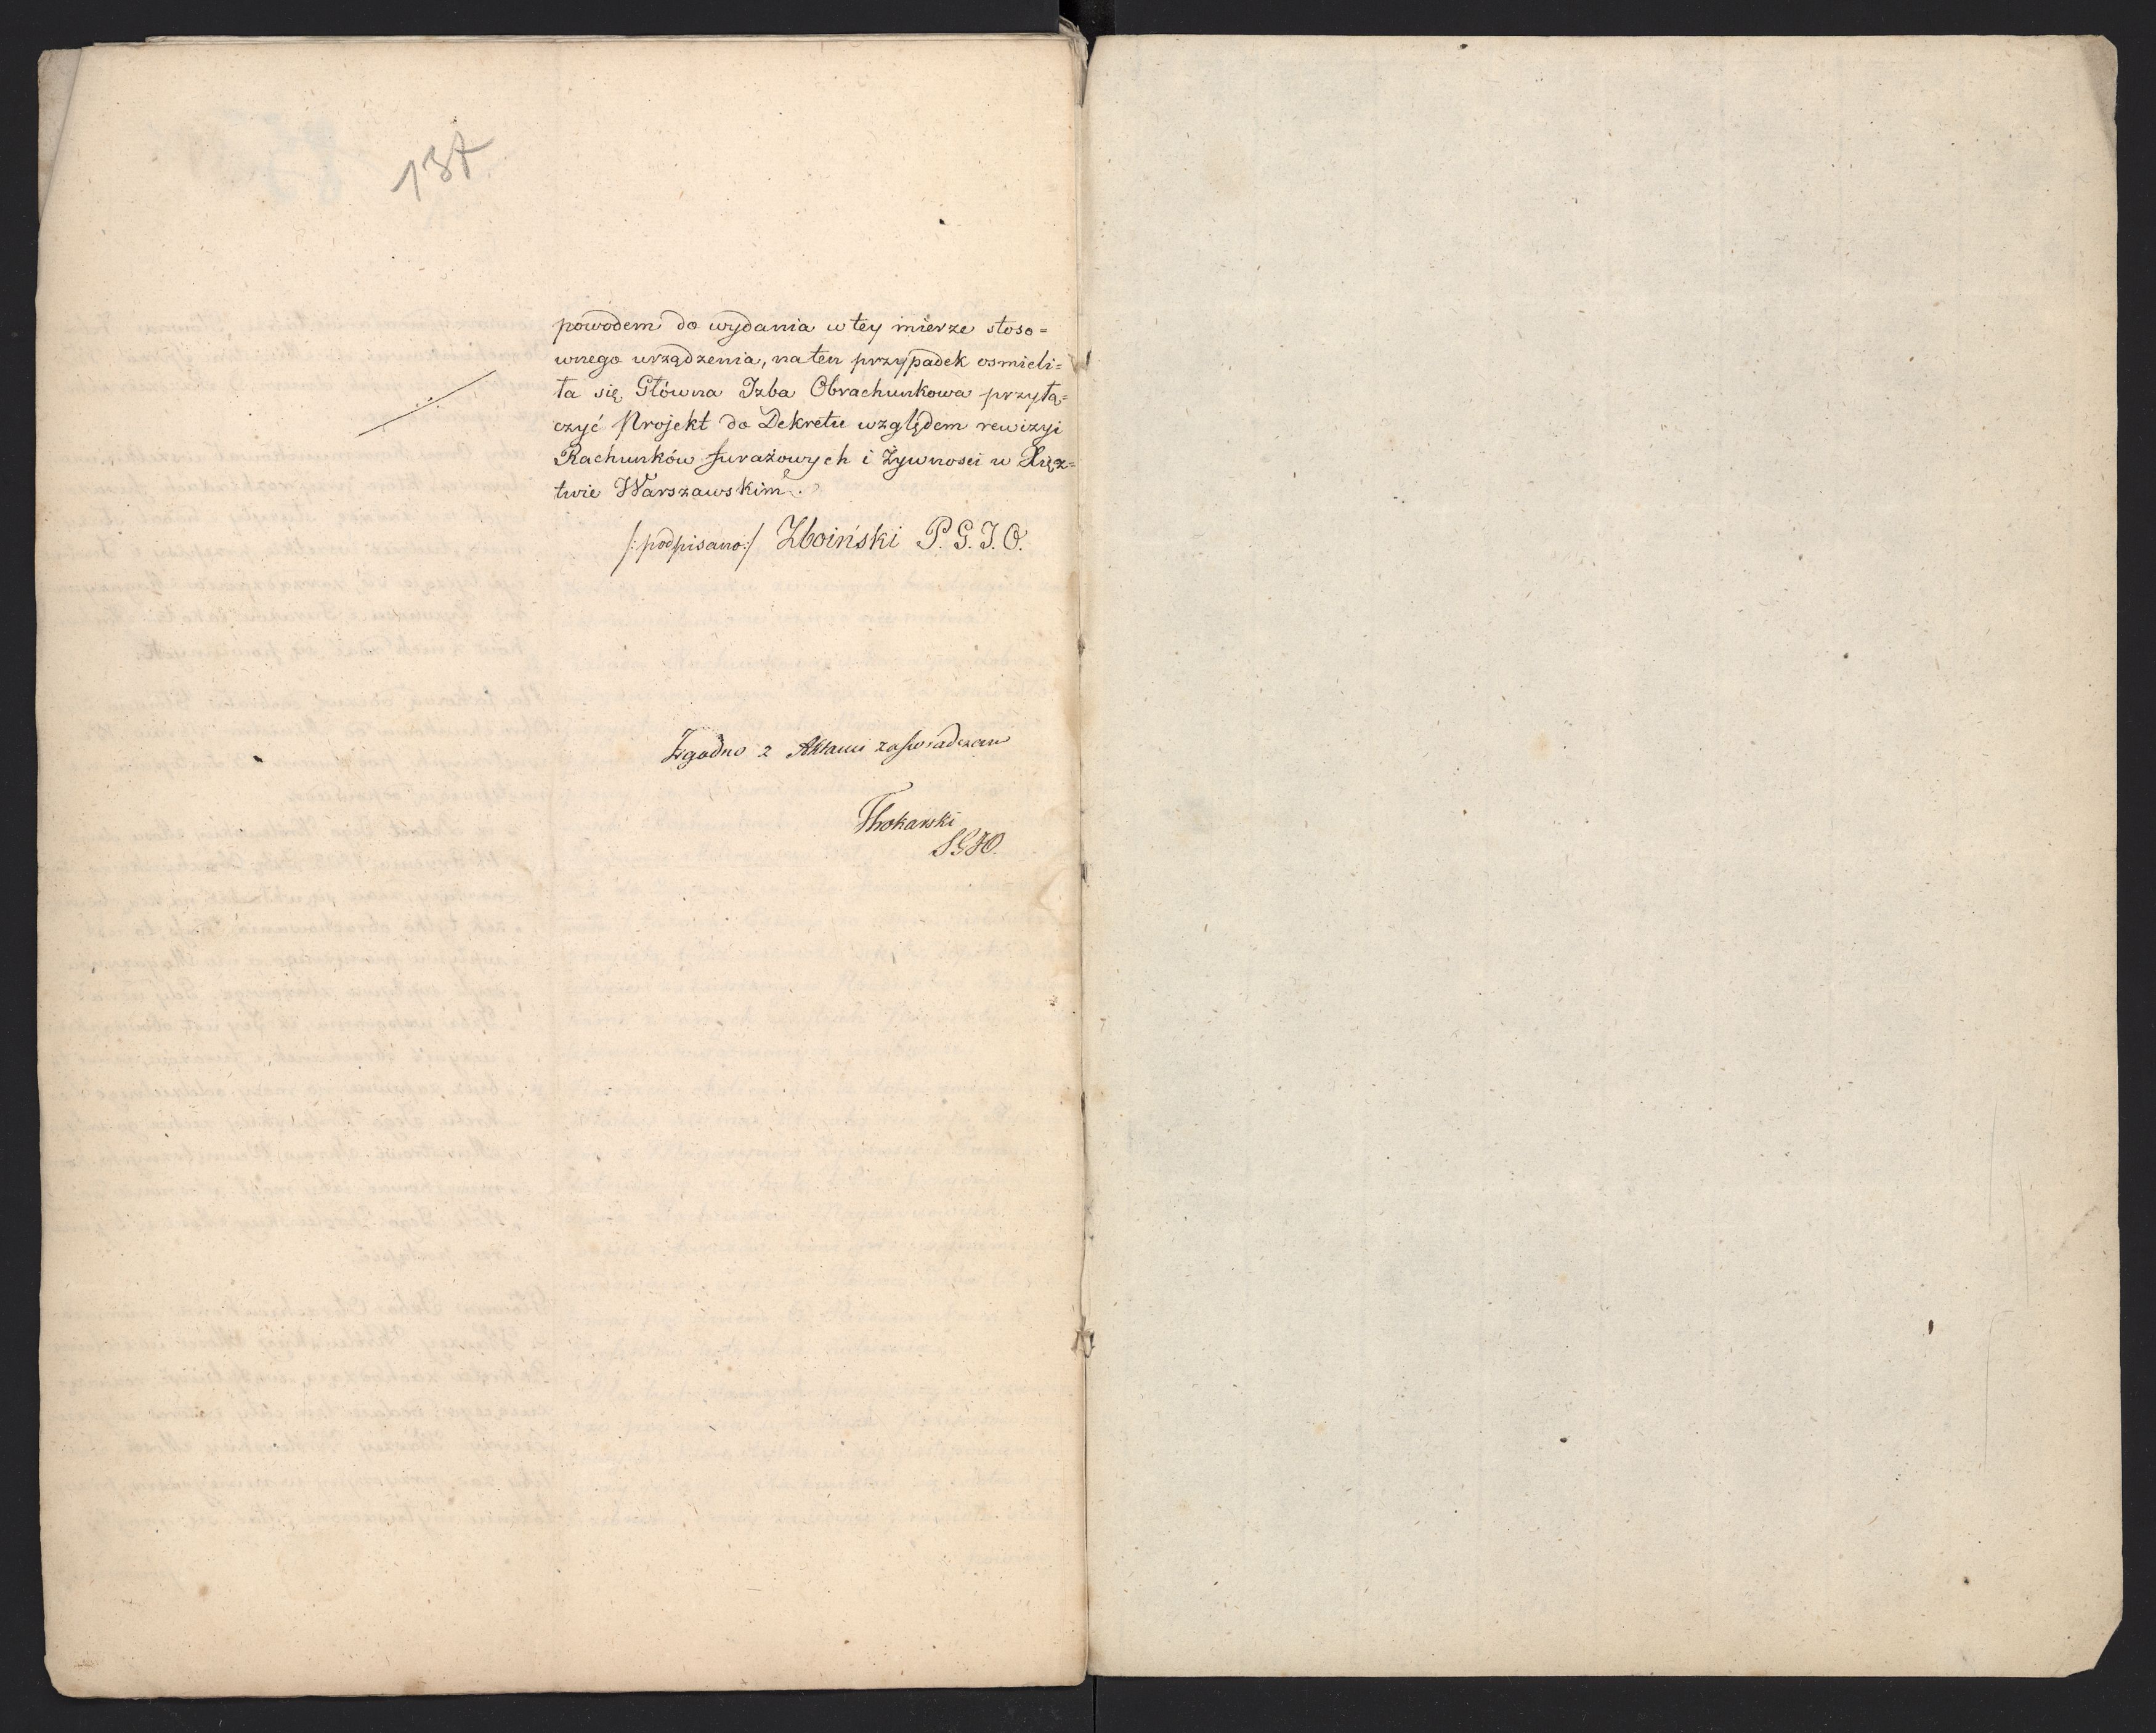 137
powodem do wydania w tey mierze stoso=
wnego urządzenia, na ten przypadek osmieli=
ła się Główna Izba Obrachunkowa przyłą=
czyć Projekt do Dekretu względem rewizyi
Rachunków furażowych i Żywnosci w Xięz=
twie Warszawskim.
/:podpisano:/ Zboiński P. G. I. O.
Zgodno z Aktami zaswiadczam
Thokarski
SGIO.